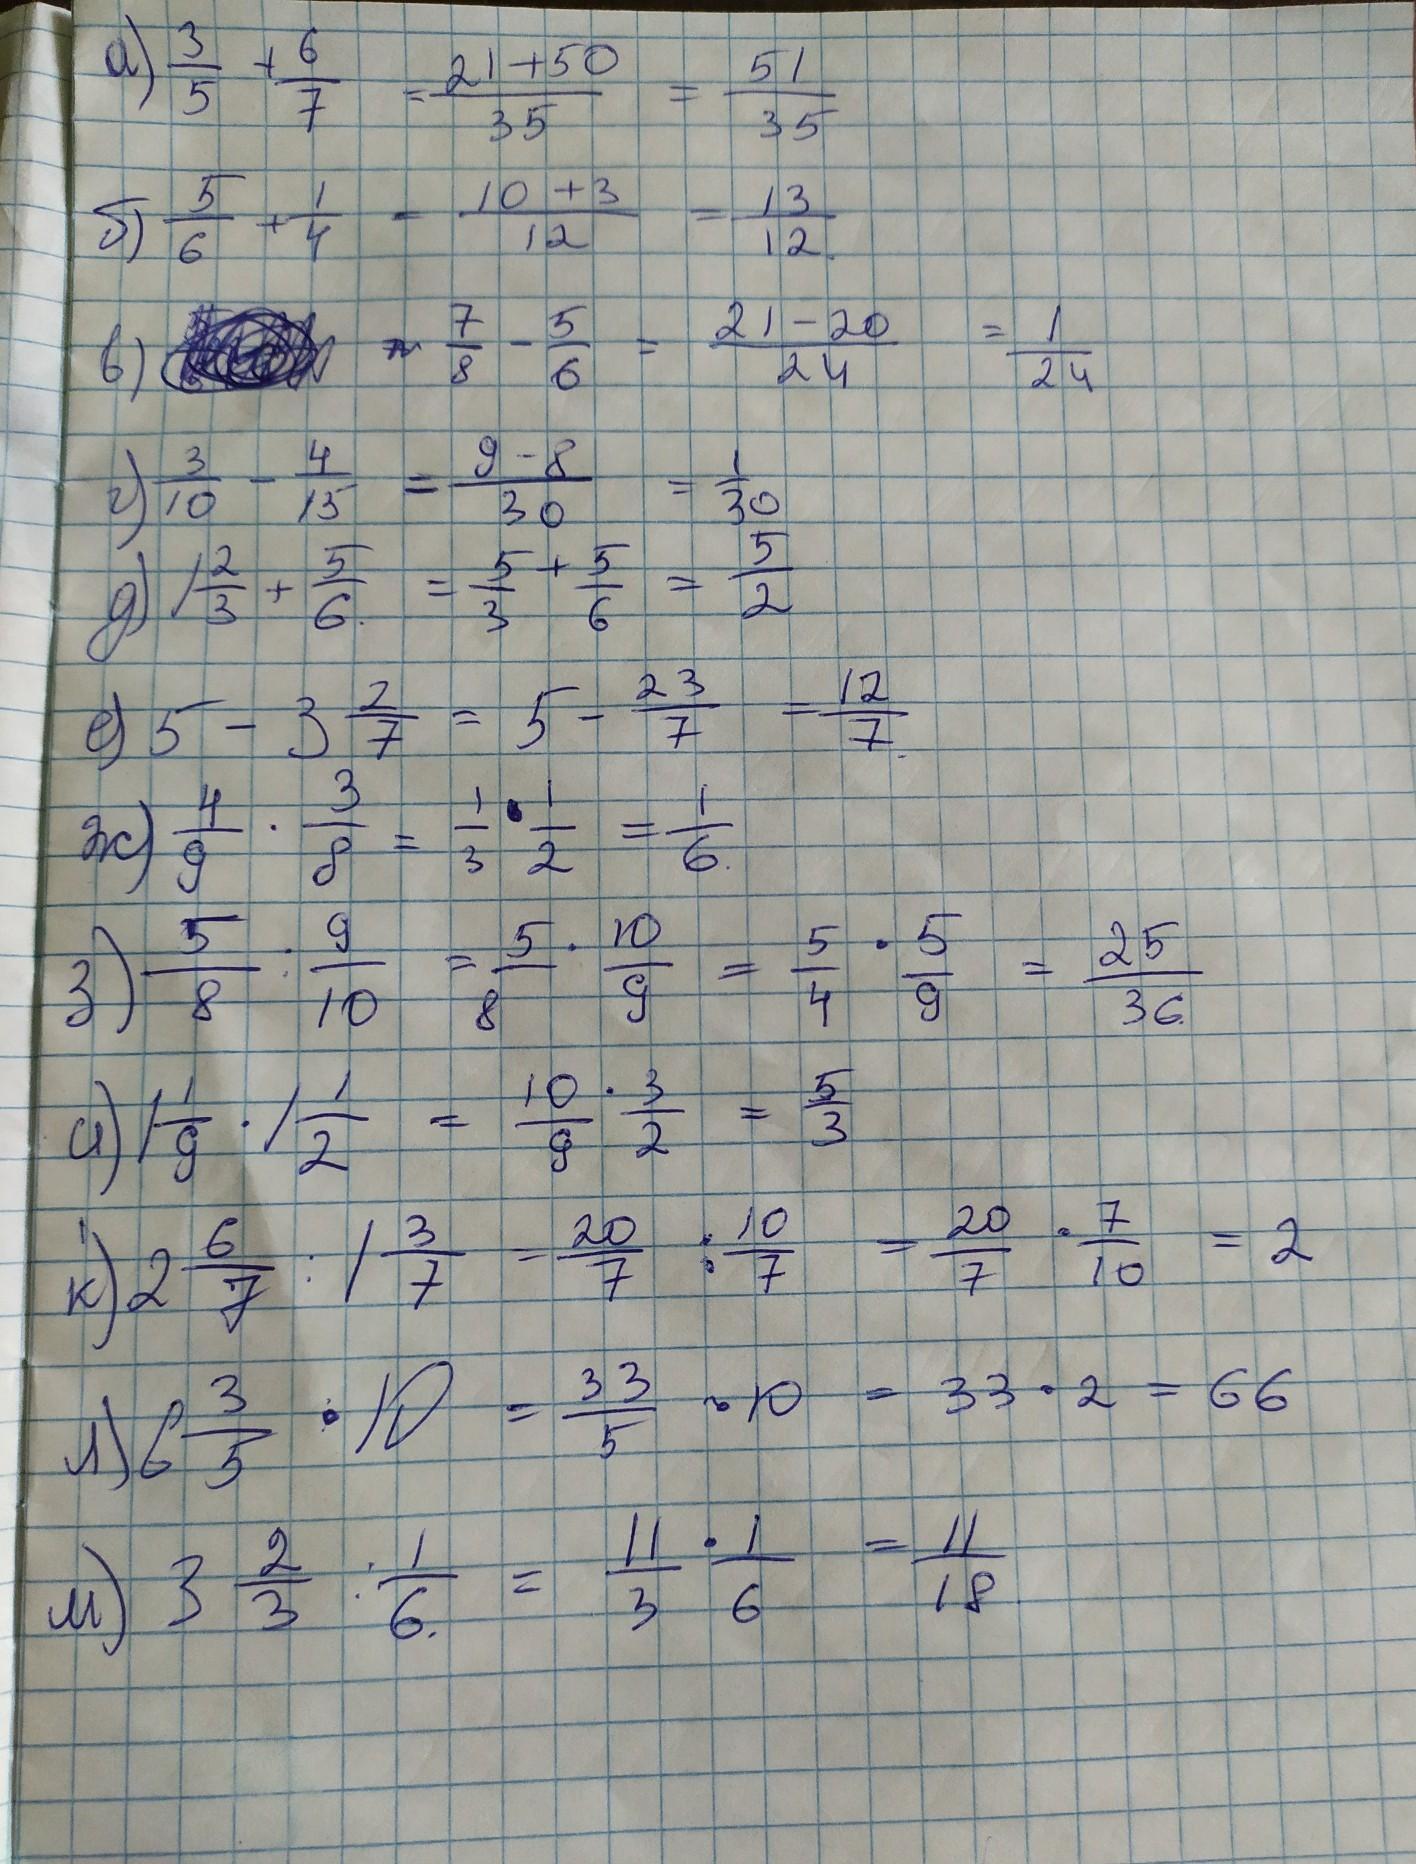 а) 3/5 + 6/7 = 21+50/35 = 51/35
б) 5/6 + 1/4 - 10+3/12 = 13/12
в) ~ 7/8 - 5/6 = 21-20/24 = 1/24
г) 3/10 - 4/15 = 9-8/30 = 1/30
д) 1 2/3 + 5/6 = 5/3 + 5/6 = 5/2
е) 5 - 3 2/7 = 5 - 23/7 = 12/7
ж) 4/9 · 3/8 = 1/3 · 1/2 = 1/6
з) 5/8 : 9/10 = 5/8 · 10/9 = 5/4 · 5/9 = 25/36
и) 1 1/9 · 1 1/2 = 10/9 · 3/2 = 5/3
к) 2 6/7 : 1 3/7 = 20/7 : 10/7 = 20/7 · 7/10 = 2
л) 6 3/5 · 10 = 33/5 · 10 = 33 · 2 = 66
м) 3 2/3 : 1/6 = 11/3 · 1/6 = 11/18